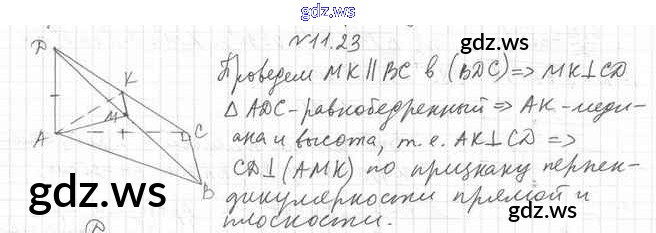 gdz.ws
№11.23
gdz.ws
Проведем MK∥BC в (BDC)=> MK⊥CD
△ ADC-равнобедренный => AK-меди-
ана и высота, т.е. AK⊥CD =>
CD⊥(AMK) по признаку перпен-
дикулярности прямой и
плоскости.
D
K
M
A
C
B
gdz.ws
gdz.ws
gdz.ws